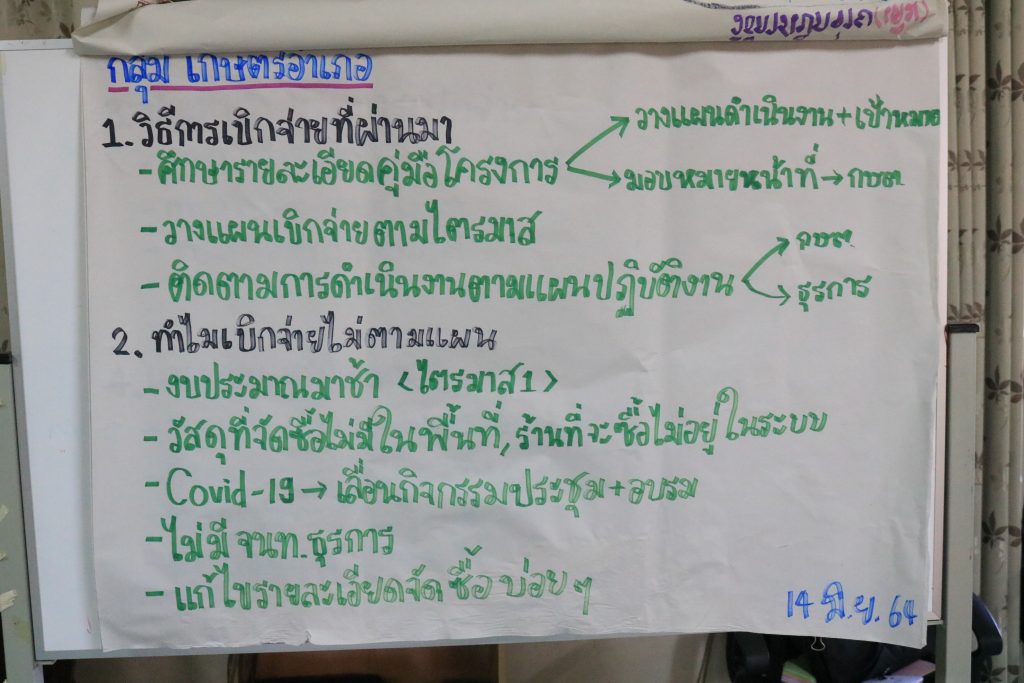 กลุ่ม เกษตรอำเภอ
1. วิธีการเบิกจ่ายที่ผ่านมา
- ศึกษารายละเอียดคู่มือโครงการ → วางแผนดำเนินงาน + เป้าหมาย
→ มอบหมายหน้าที่ → กษต.
- วางแผนเบิกจ่ายตามไตรมาส
- ติดตามการดำเนินงานตามแผนปฏิบัติงาน → กษต.
→ ธุรการ
2. ทำไมเบิกจ่ายไม่ตามแผน
- งบประมาณมาช้า <ไตรมาส 1>
- วัสดุที่จัดซื้อไม่มีในพื้นที่, ร้านที่จะซื้อไม่อยู่ในระบบ
- Covid-19 → เลื่อนกิจกรรมประชุม + อบรม
- ไม่มี จนท. ธุรการ
- แก้ไขรายละเอียดจัดซื้อบ่อยๆ
14 มิ.ย. 64